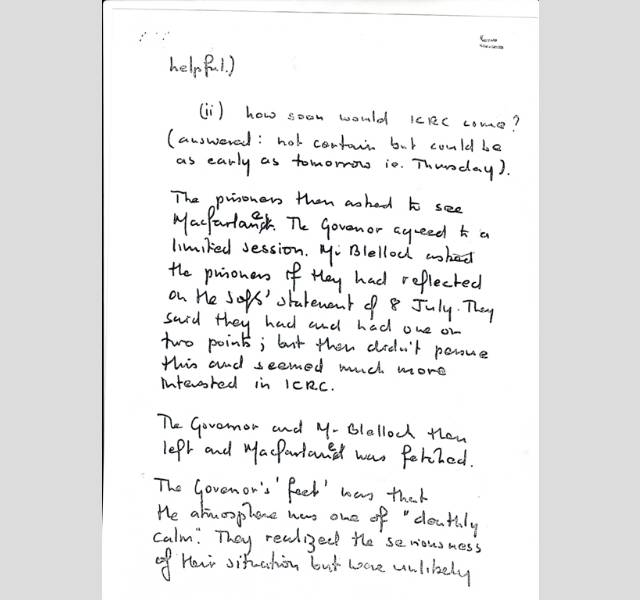 helpful.)
(ii) how soon would ICRC come?
(answered: not certain but could be
as early as tomorrow ie. Thursday).
The prisoners then asked to see
Macfarlane. The Govenor agreed to a
limited session. Mr Blelloch asked
the prisoners if they had reflected
on the SofS' statement of 8 July. They
said they had and had one or
two points; but then didn't persue
this and seemed much more
interested in ICRC.
The Governor and Mr Blelloch then
left and Macfarlane was fetched.
The Govenor's 'feel' was that
the atmosphere was one of "deathly
calm". They realized the seriousness
of their situation but were unlikely